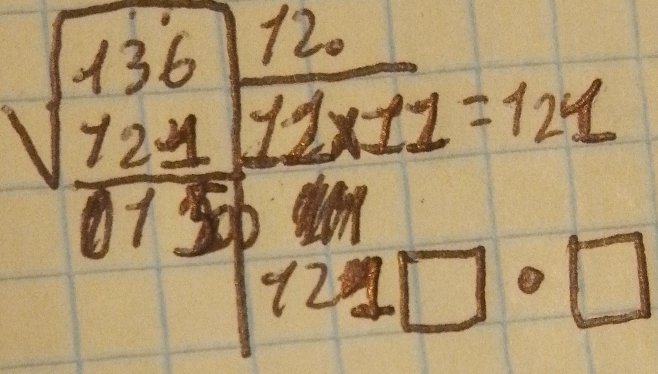 √136 | 12.
121 | 11×11=121
01500
121□·□